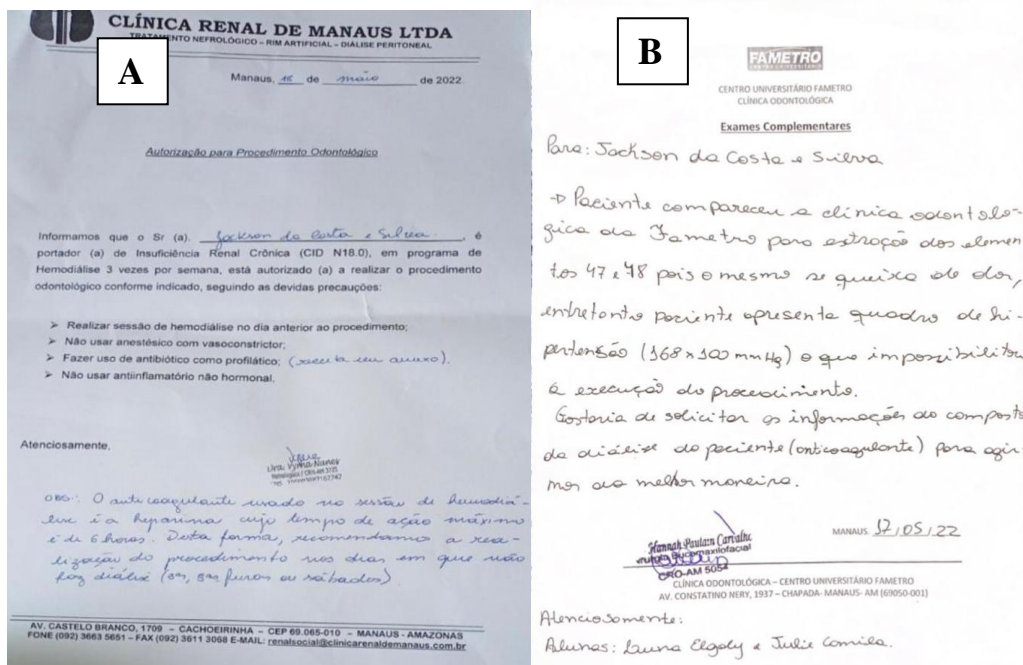 A
CLÍNICA RENAL DE MANAUS LTDA
TRATAMENTO NEFROLÓGICO – RIM ARTIFICIAL – DIÁLISE PERITONEAL
Manaus, 16 de maio de 2022.
Autorização para Procedimento Odontológico
Informamos que o Sr (a). Jackson da Costa e Silva, é
portador (a) de Insuficiência Renal Crônica (CID N18.0), em programa de
Hemodiálise 3 vezes por semana, está autorizado (a) a realizar o procedimento
odontológico conforme indicado, seguindo as devidas precauções:
➢ Realizar sessão de hemodiálise no dia anterior ao procedimento;
➢ Não usar anestésico com vasoconstrictor;
➢ Fazer uso de antibiótico como profilático; (receita em anexo).
➢ Não usar antiinflamatório não hormonal.
Atenciosamente,
OBS: O anticoagulante usado na sessão de hemodiá-
lise é a heparina cujo tempo de ação máximo
é de 6 horas. Desta forma, recomendamos a rea-
lização do procedimento nos dias em que não
faz diálise (3as, 5as feiras ou sábados).
AV. CASTELO BRANCO, 1709 – CACHOEIRINHA – CEP 69.065-010 – MANAUS - AMAZONAS
FONE (092) 3663 5651 – FAX (092) 3611 3068 E-MAIL: renalsocial@clinicarenaldemanaus.com.br
B
FAMETRO
CENTRO UNIVERSITÁRIO
CENTRO UNIVERSITÁRIO FAMETRO
CLÍNICA ODONTOLÓGICA
Exames Complementares
Para: Jackson da Costa e Silva
→ Paciente compareceu a clínica odontoló-
gica da Fametro para extração dos elemen-
tos 47 e 48 pois o mesmo se queixa de dor,
entretanto paciente apresenta quadro de hi-
pertensão (168 x 100 mmHg) o que impossibilita
a execução do procedimento.
Gostaria de solicitar as informações do composto
da diálise do paciente (anticoagulante) para agir-
mos da melhor maneira.
Hannah Paulain Carvalho
Bucomaxilofacial
CRO-AM 5054
MANAUS. 17/05/22
CLÍNICA ODONTOLÓGICA – CENTRO UNIVERSITÁRIO FAMETRO
AV. CONSTATINO NERY, 1937 – CHAPADA- MANAUS- AM (69050-001)
Atenciosamente:
Alunas: Luana Elgaly e Julie Camila.